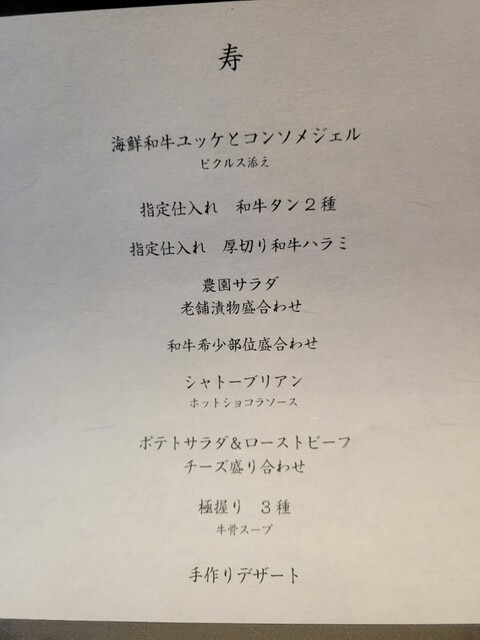 寿
海鮮和牛ユッケとコンソメジェル
ピクルス添え
指定仕入れ　和牛タン２種
指定仕入れ　厚切り和牛ハラミ
農園サラダ
老舗漬物盛合わせ
和牛希少部位盛合わせ
シャトーブリアン
ホットショコラソース
ポテトサラダ＆ローストビーフ
チーズ盛り合わせ
極握り　３種
牛骨スープ
手作りデザート